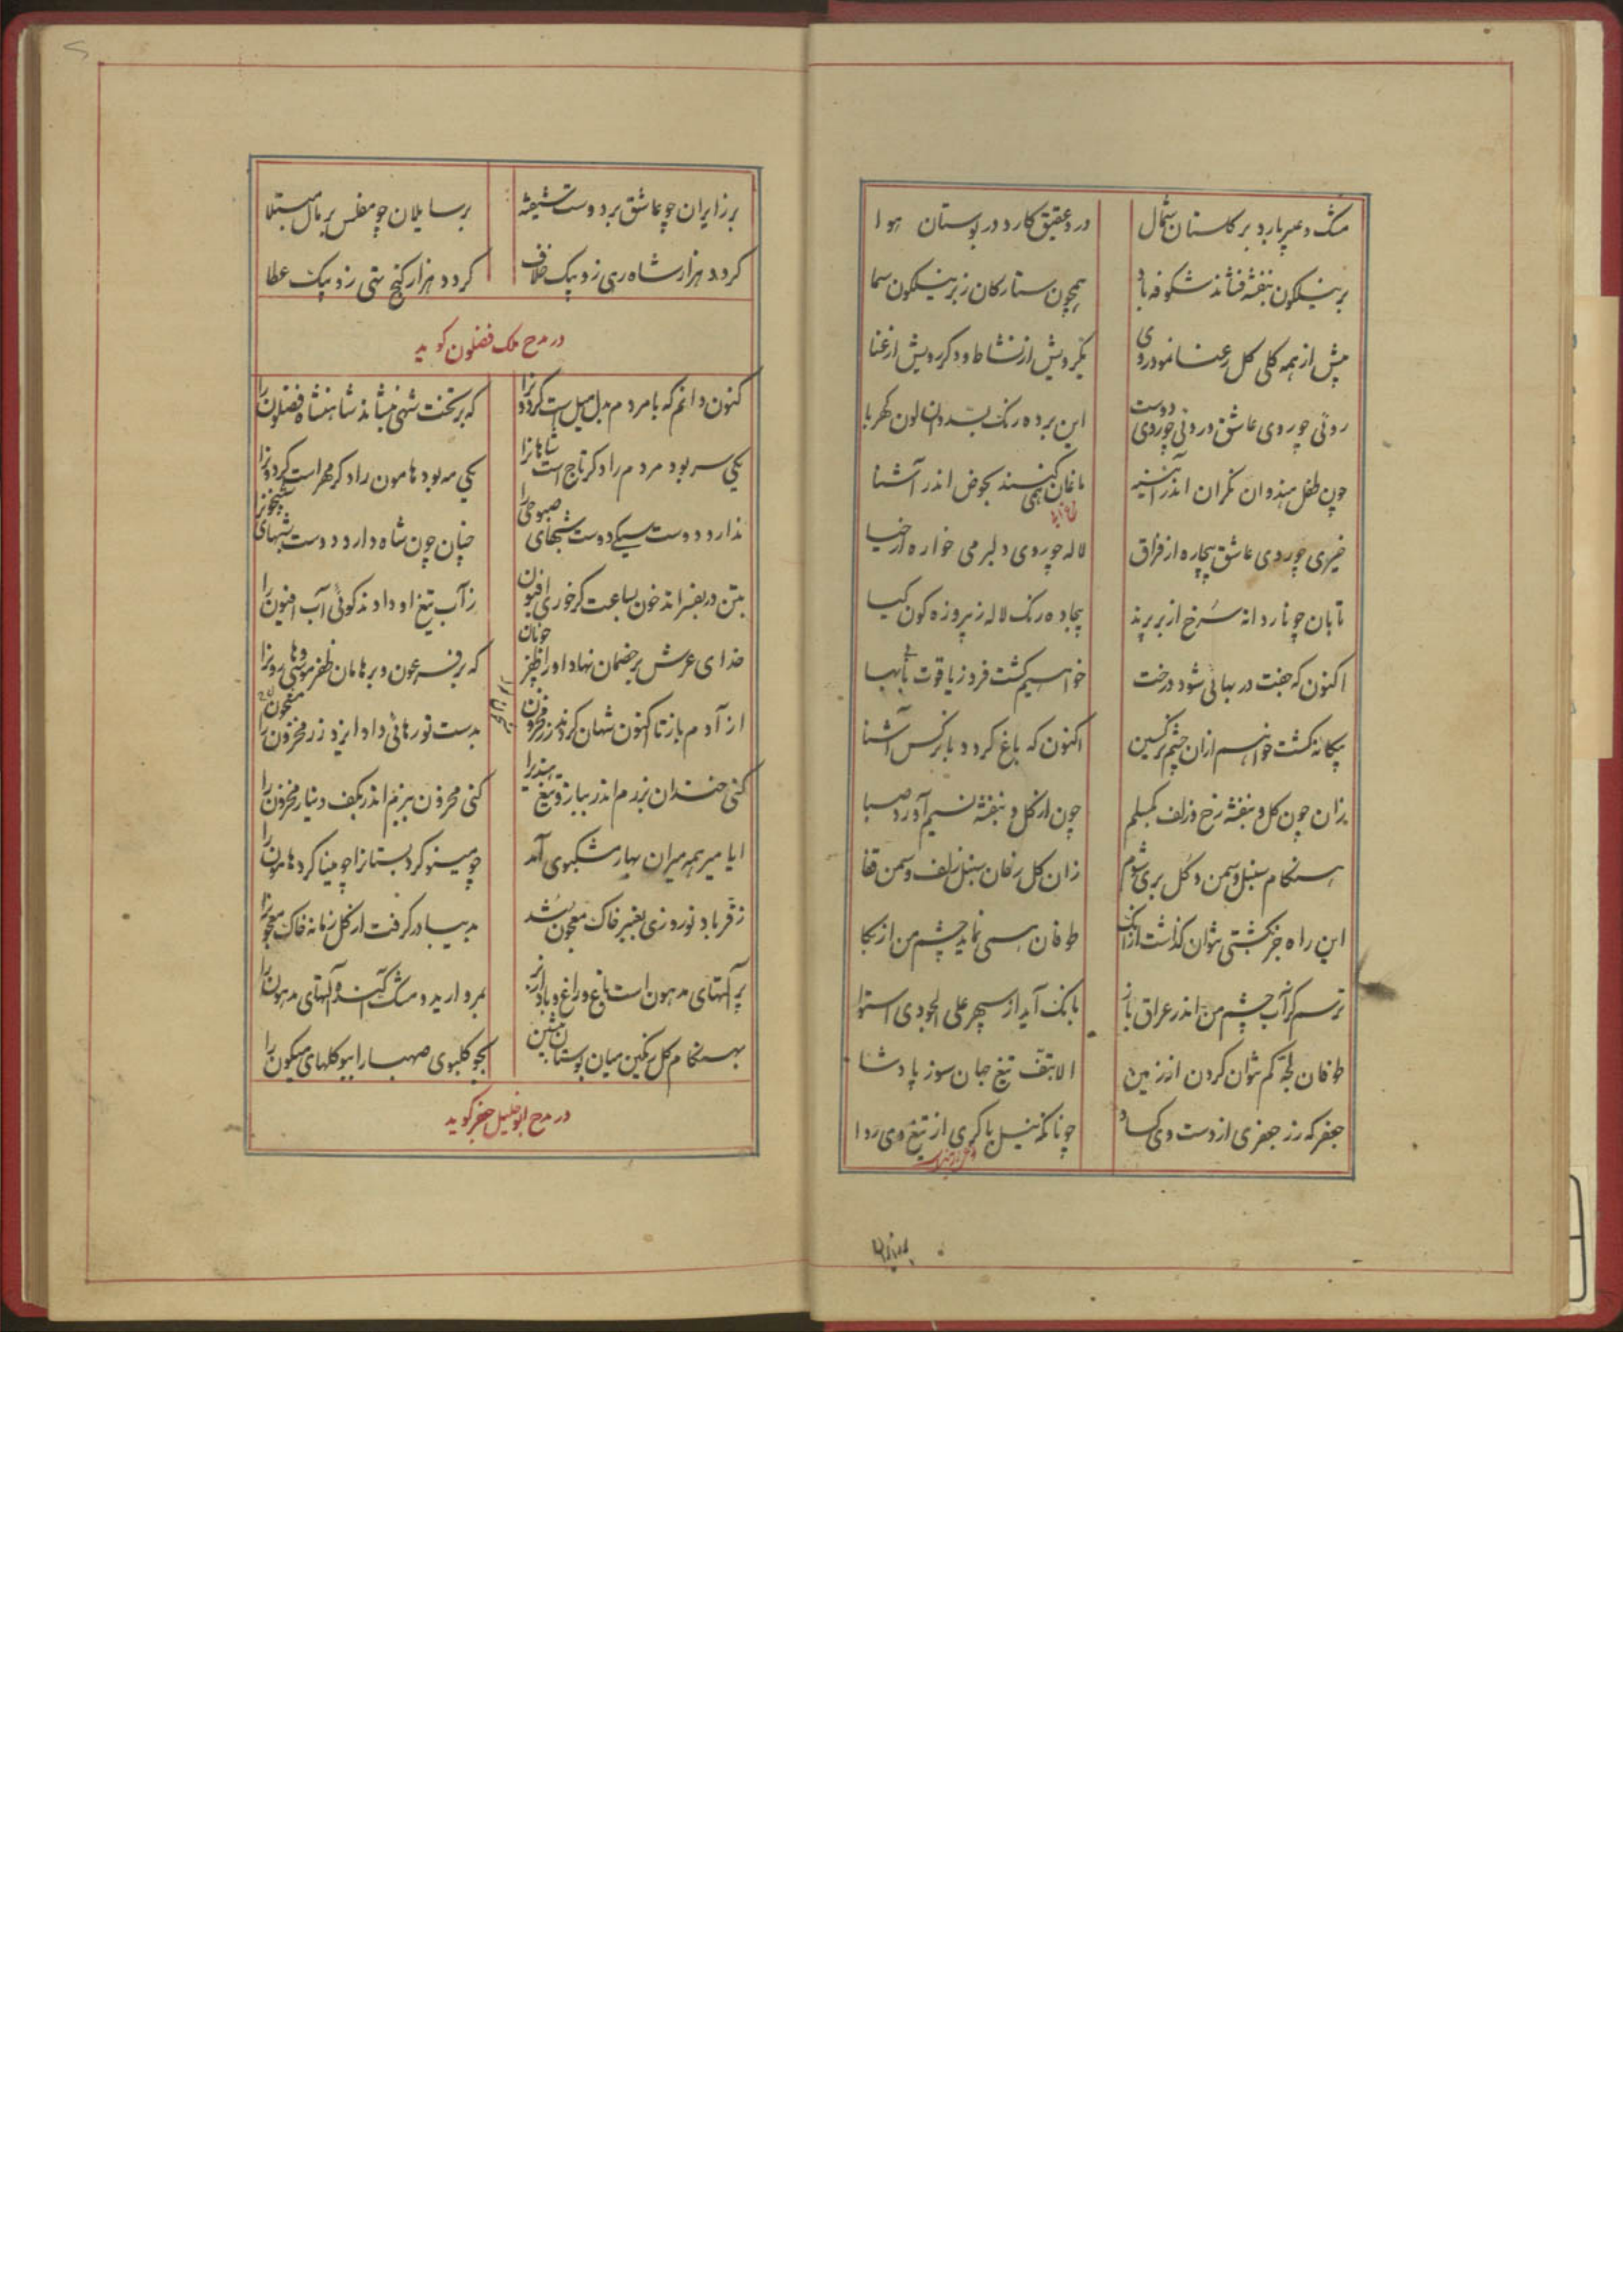 مشک و عبیر بارد بر کلستان شمال
در و عقیق کارد در بوستان هوا
بر نیلکون بنفشه فشاند شکوفه باد
همچون ستارکان ز بر نیلکون سما
پیش از همه کلی کل رعنا نمود روی
یکرویش از نشاط و دکر رویش از عنا
روئی چو روی عاشق و روئی چو روی دوست
این برده رنک بسد و ان لون کهربا
چون طفل هندوان نکران اندر آینه
ماغان کنند همی بحوض اندر آشنا
خیری چو روی عاشق بیچاره از فراق
لاله چو روی دلبر می خواره از حیا
تابان چو ناردانه سرخ از بر پرند
بیجاده رنک لاله ز پیروزه کون کیا
اکنون که جفت در بهائی شود درخت
خواهیم کشت فرد ز یاقوت با بها
بیکانه کشت خواهم ازان چشم نرکسین
اکنون که باغ کردد با نرکس آشنا
زان چون کل و بنفشه رخ و زلف بکسلم
چون از کل و بنفشه نسیم آورد صبا
هنکام سنبل و سمن و کل بری شوم
زان کل رخان سنبل زلف و سمن قفا
این راه جز بکشتی نتوان کذاشت ازانک
طوفان همی نماید چشم من از بکا
ترسم کز آب چشم من اندر عراق باز
بانک آید از سپهر علی الجودی استوا
طوفان لجه کم نتوان کردن از زمین
الا بتف تیغ جهان سوز پادشا
جعفر که زر جعفری از دست وی کساد
چونانکه نیل باکری از تیغ وی روا
بر زایران چو عاشق بر دوست شیفته
بر سایلان چو مفلس بر مال مبتلا
کردد هزار شاه رهی زو بیک خلاف
کردد هزار کنج تهی زو بیک عطا
در مدح ملک فضلون کوید
کنون دانم که با مردم بدل میل است کردون را
که بر تخت شهی بنشاند شاهنشاه فضلون را
یکی سر بود مردم را دکر تاج است شاهان را
یکی مه بود هامون را دکر مهر است کردون را
ندارد دوست میکی دوست شبهای صبوحی را
چنان چون شاه دارد دوست شبهای شبیخون را
بتن در بفسراند خون بساعت کر خوری افیون
ز آب تیغ او دادند کوئی آب افیون را
خدای عرش بر خصمان نهاد او را ظفر چونان
که بر فرعون و بر هامان ظفر موسی و هارون را
از آدم باز تا اکنون شهان کردند زر مخزون
بدست تو رهائی داد ایزد زر مخزون را
کنی خندان برزم اندر بباز و تیغ هندی را
کنی محزون ببزم اندر بکف دینار مخزون را
ایا میر همه میران بهار مشکبوی آمد
چو مینو کرد بستانرا چو مینا کرد هامون را
ز فر باد نوروزی بعنبر خاک معجون شد
بدیبا در کرفت از کل زمانه خاک معجون را
پر آلتهای مدهون است باغ و راغ و باد از بر
بمروارید و مشک آکند آلتهای مدهون را
بهنکام کل رنکین میان بوستان بنشین
بجو کلبوی صهبا را ببو کلهای میکون را
در مدح ابو خلیل جعفر کوید